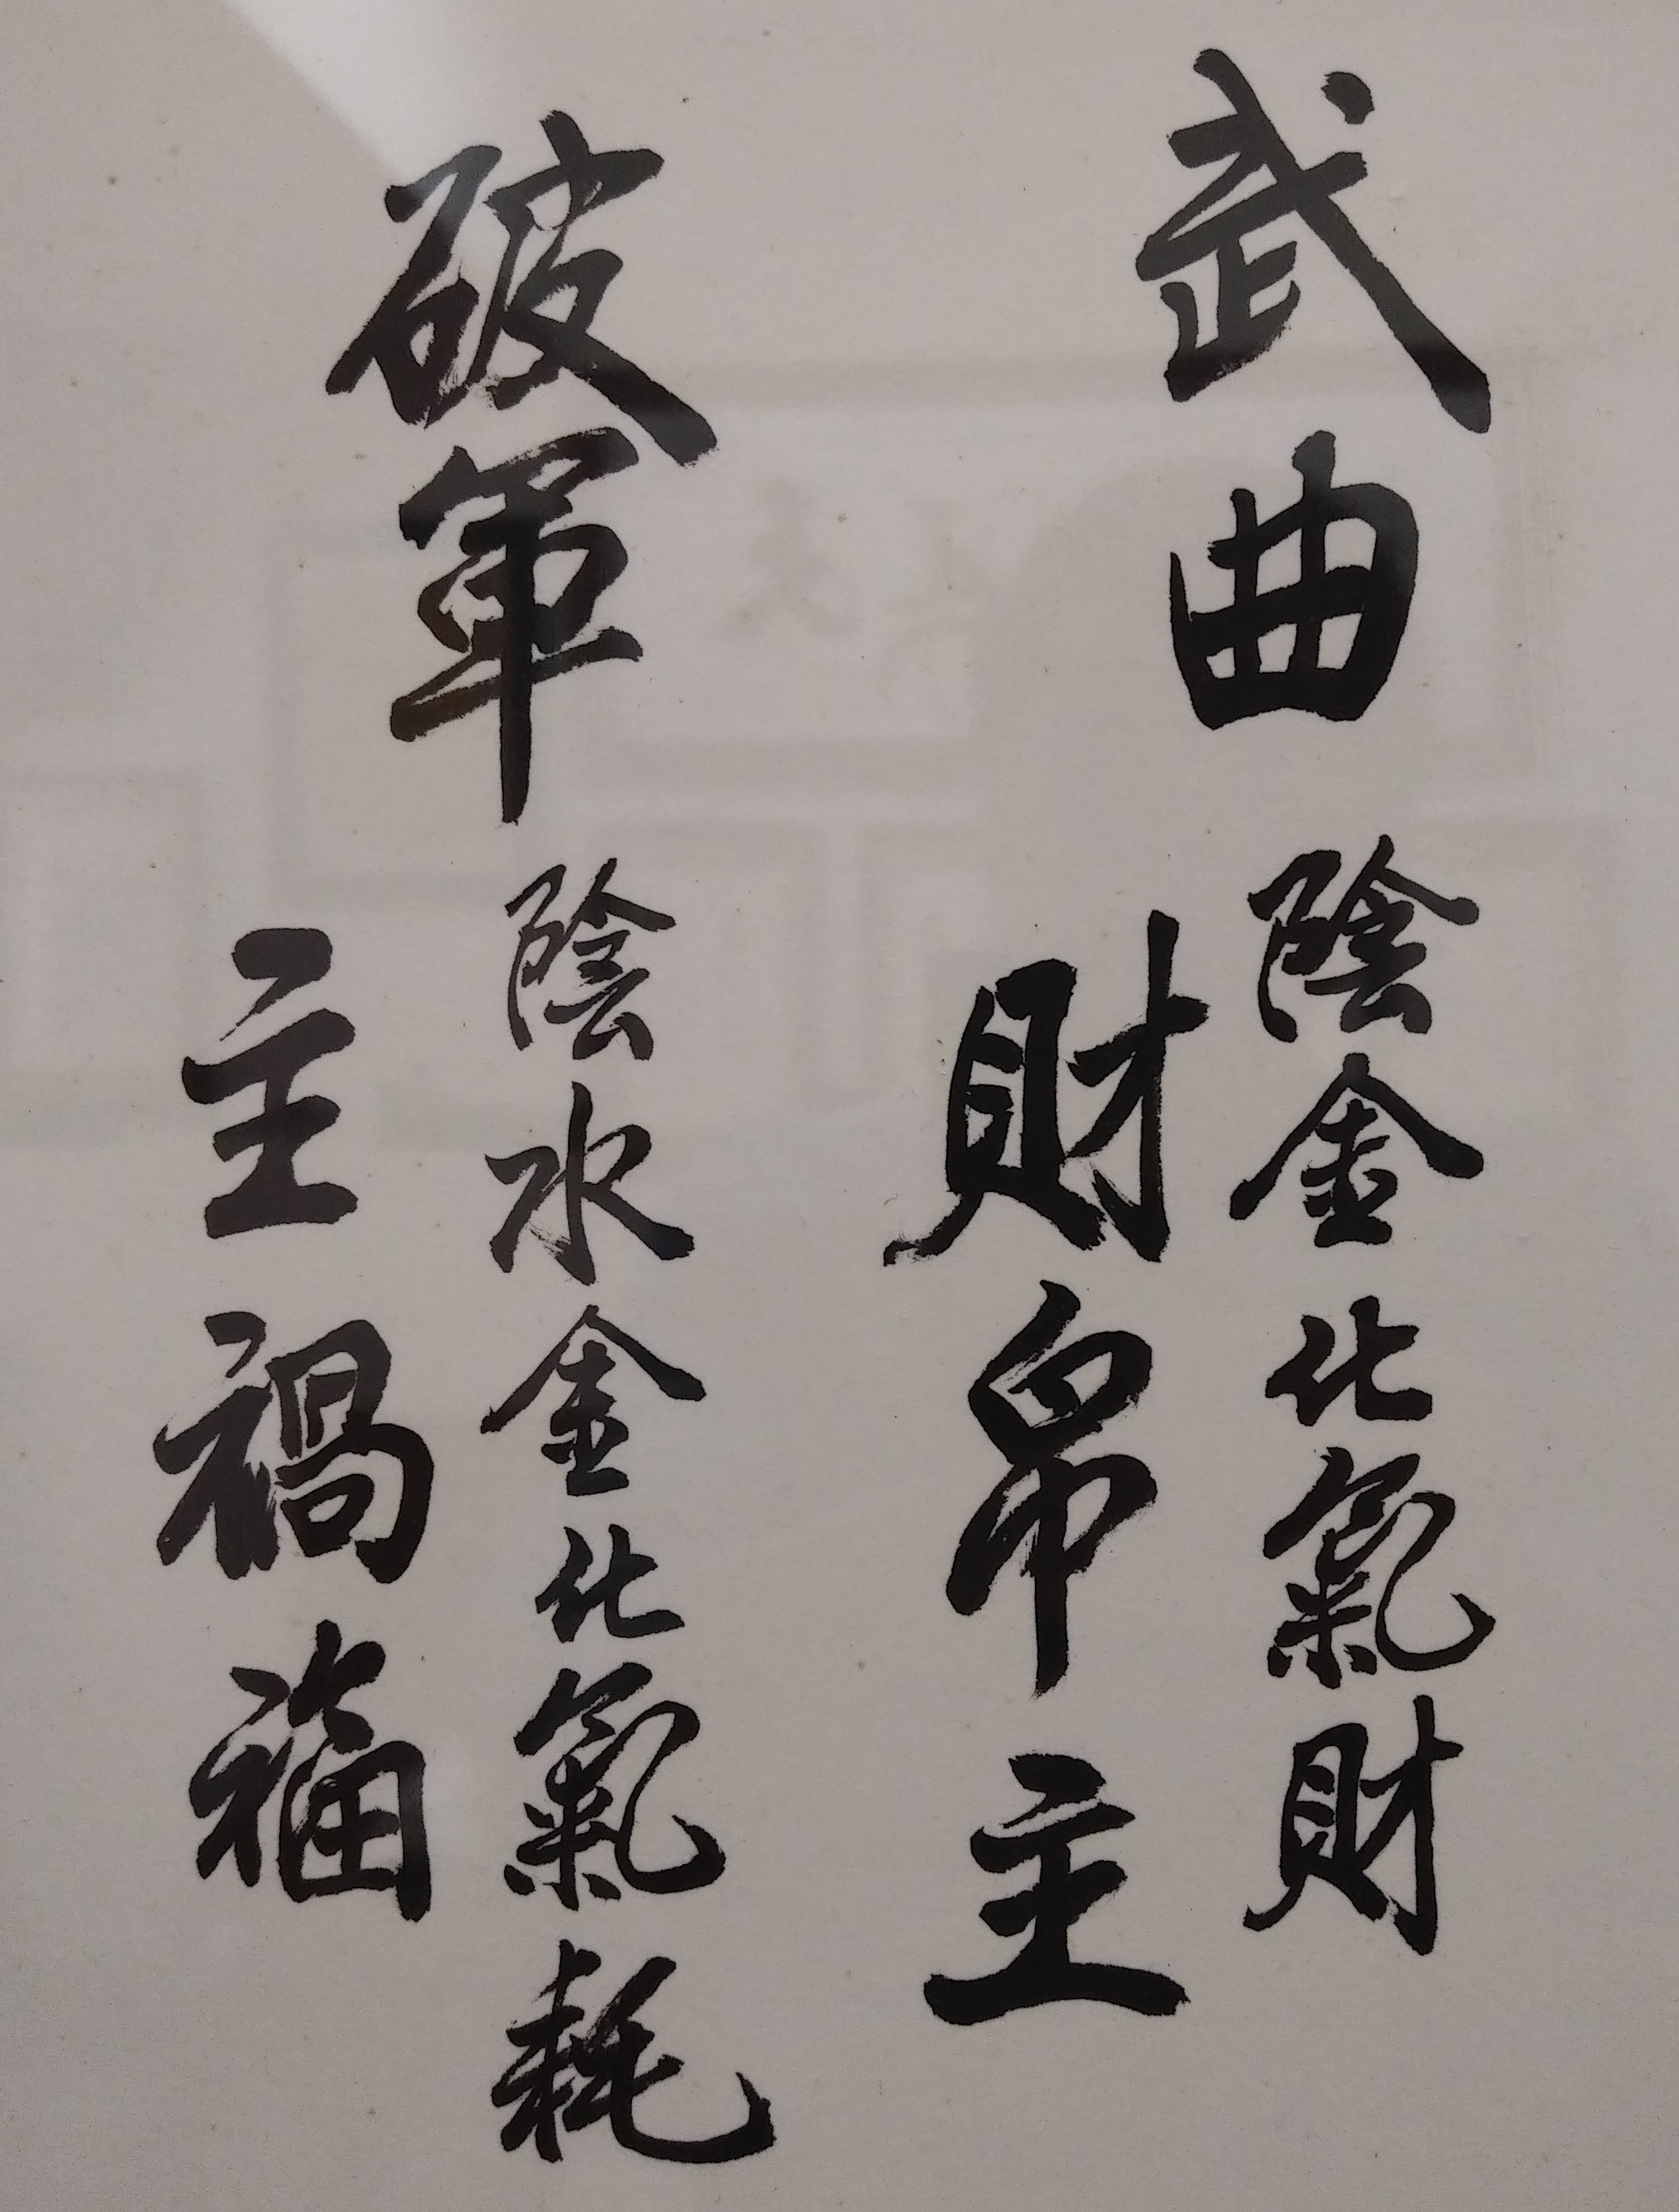 武曲
陰金化氣財
財帛主
破軍
陰水金化氣耗
主禍福